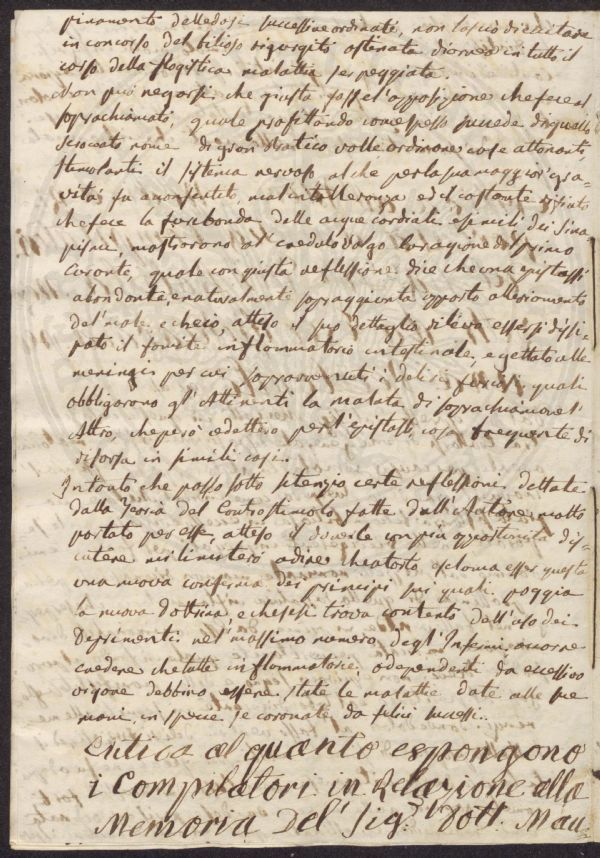 pinamento delle dosi successive ordinate, non lasciò di eccitare
in concorso del bilioso rigurgiti ostinata diarrea in tutto il
corso della flogistica malattia serpeggiata.
Non può negarsi che giusta fosse l'opposizione che fece al
soprachiamato, quale profitando come spesso succede di quello
nome di gran pratico volle ordinare cose attonanti,
stimolanti il sistema nervoso, al che per la sua maggior gra-
vità fu acconsentito, mal intolleranza ed il costante rifiuto
che fece la furibonda delle acque cordiali e simili dei Sina
pismi, mostrarono al credulo volgo la ragione del primo
Curante, quale con giusta reflessione dice che una epistassi
abondante, e naturalmente sopraggiunta apportò allegiamento
del male e che io, atteso il suo dettaglio rilevo essersi dissi-
pato il fomite inflammatorio intestinale, e gettato alle
meningi per cui sopravvenuti i deliri furiosi quali
obbligarono gl'Attinenti la malata di soprachiamare l'
Altro, che però cedettero per l'epistassi, cosa frequente di
risorsa in simili casi.
Intanto che passo sotto silenzio certe reflessioni dettate
dalla Teoria del Controstimolo fatte dall'Autore molto
portato per esse, atteso il doverle con più opportunità dis-
cutere mi limiterò a dire che a torto esclama esser questa
una nuova conferma dei principi su quali poggia
la nuova dottrina, e che se si trova contento dell'uso dei
Deprimenti nel massimo numero degl'Infermi, occorre
credere che tutte inflammatorie, o dependenti da eccessivo
vigore debbino essere state le malattie date alle sue
mani, in specie se coronate da felici successi.
Critica a quanto espongono
i Compilatori in Relazione alla
Memoria Del Sig.r Dott. Mau-